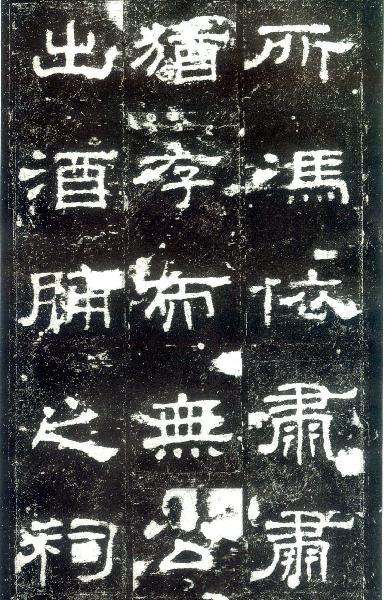 所馮依肅肅
猶存而無公
出酒脯之祠